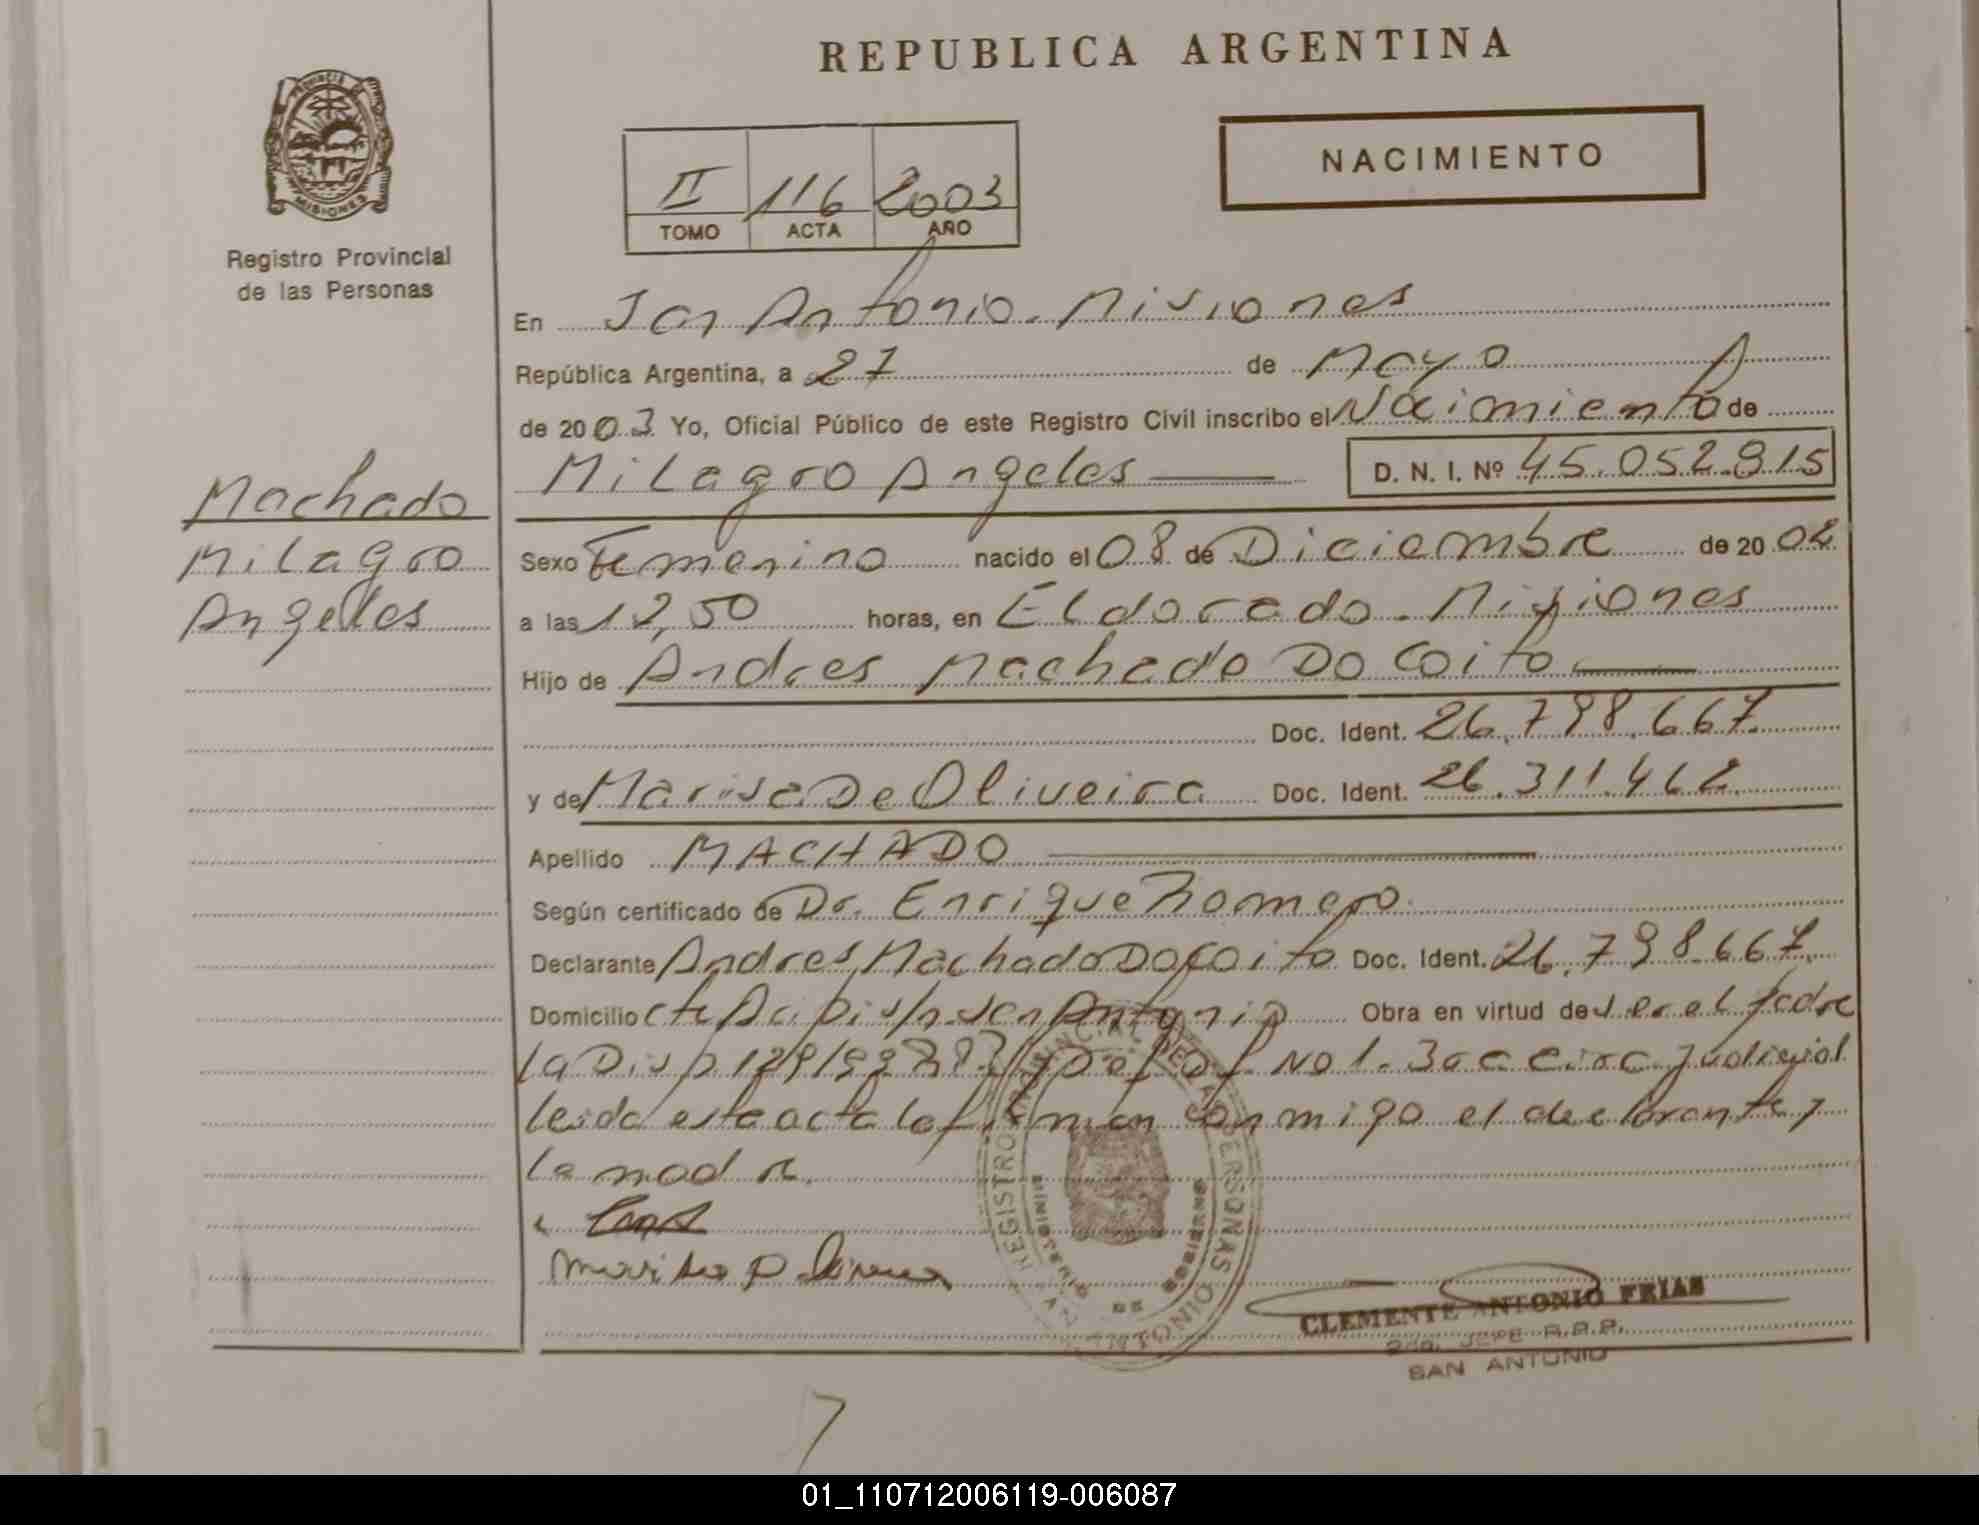 REPUBLICA ARGENTINA
PROVINCIA DE
MISIONES
Registro Provincial
de las Personas
NACIMIENTO
II 116 2003
TOMO ACTA AÑO
En San Antonio. Misiones
República Argentina, a 27 de Mayo
de 2003 Yo, Oficial Público de este Registro Civil inscribo el Nacimiento de
Milagro Angeles D. N. I. Nº 45.052.815
Machado
Milagro
Angeles
Sexo Femenino nacido el 08 de Diciembre de 2002
a las 12,50 horas, en Eldorado. Misiones
Hijo de Andres Machado Do Coito
Doc. Ident. 26.798.667
y de Marisa De Oliveira Doc. Ident. 26.311.462
Apellido MACHADO
Según certificado de Dr. Enrique Romero
Declarante Andres Machado Do Coito Doc. Ident. 26.798.667.
Domicilio San Antonio Obra en virtud de ser el padre
la Disp 129/99 No 1. 3a circ judicial
leida esta acta la firman conmigo el declarante y
la madre.
REGISTRO PROVINCIAL DE LAS PERSONAS
MINISTERIO DE GOBIERNO
SAN ANTONIO
CLEMENTE ANTONIO FRIAS
2do. JEFE R.P.P.
SAN ANTONIO
01_110712006119-006087